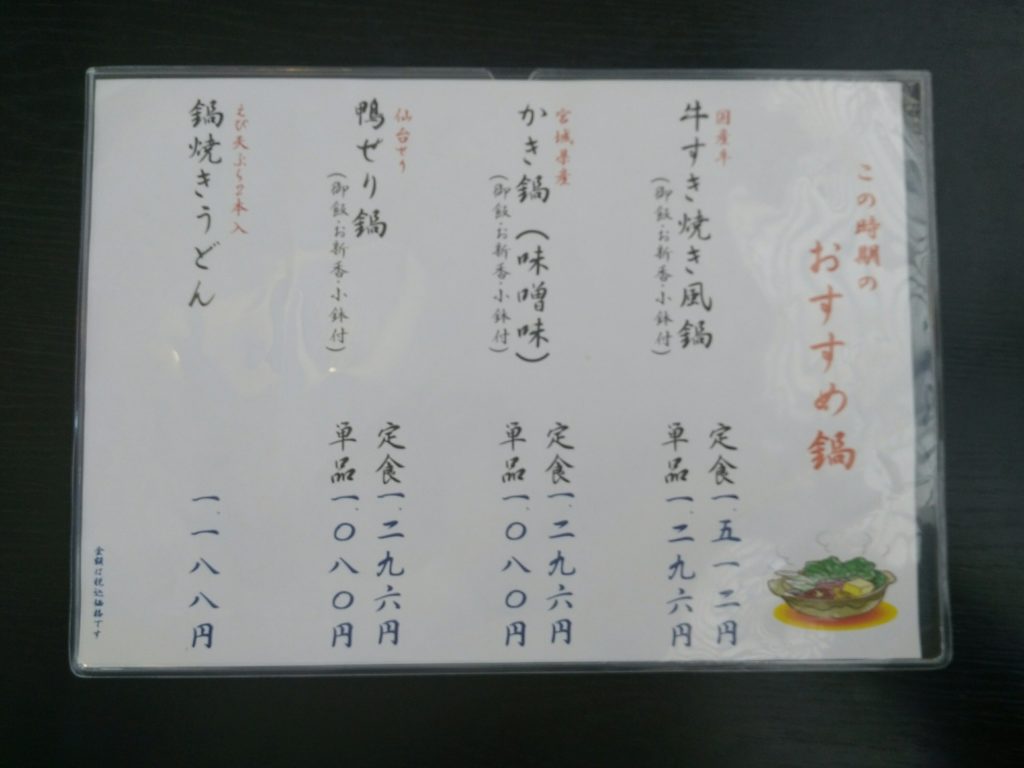 この時期の
おすすめ鍋
国産牛
牛すき焼き風鍋
(御飯・お新香・小鉢付)
定食一、五一二円
単品一、二九六円
宮城県産
かき鍋(味噌味)
(御飯・お新香・小鉢付)
定食一、二九六円
単品一、〇八〇円
仙台せり
鴨せり鍋
(御飯・お新香・小鉢付)
定食一、二九六円
単品一、〇八〇円
えび天ぷら2本入
鍋焼きうどん
一、一八八円
金額は税込価格です